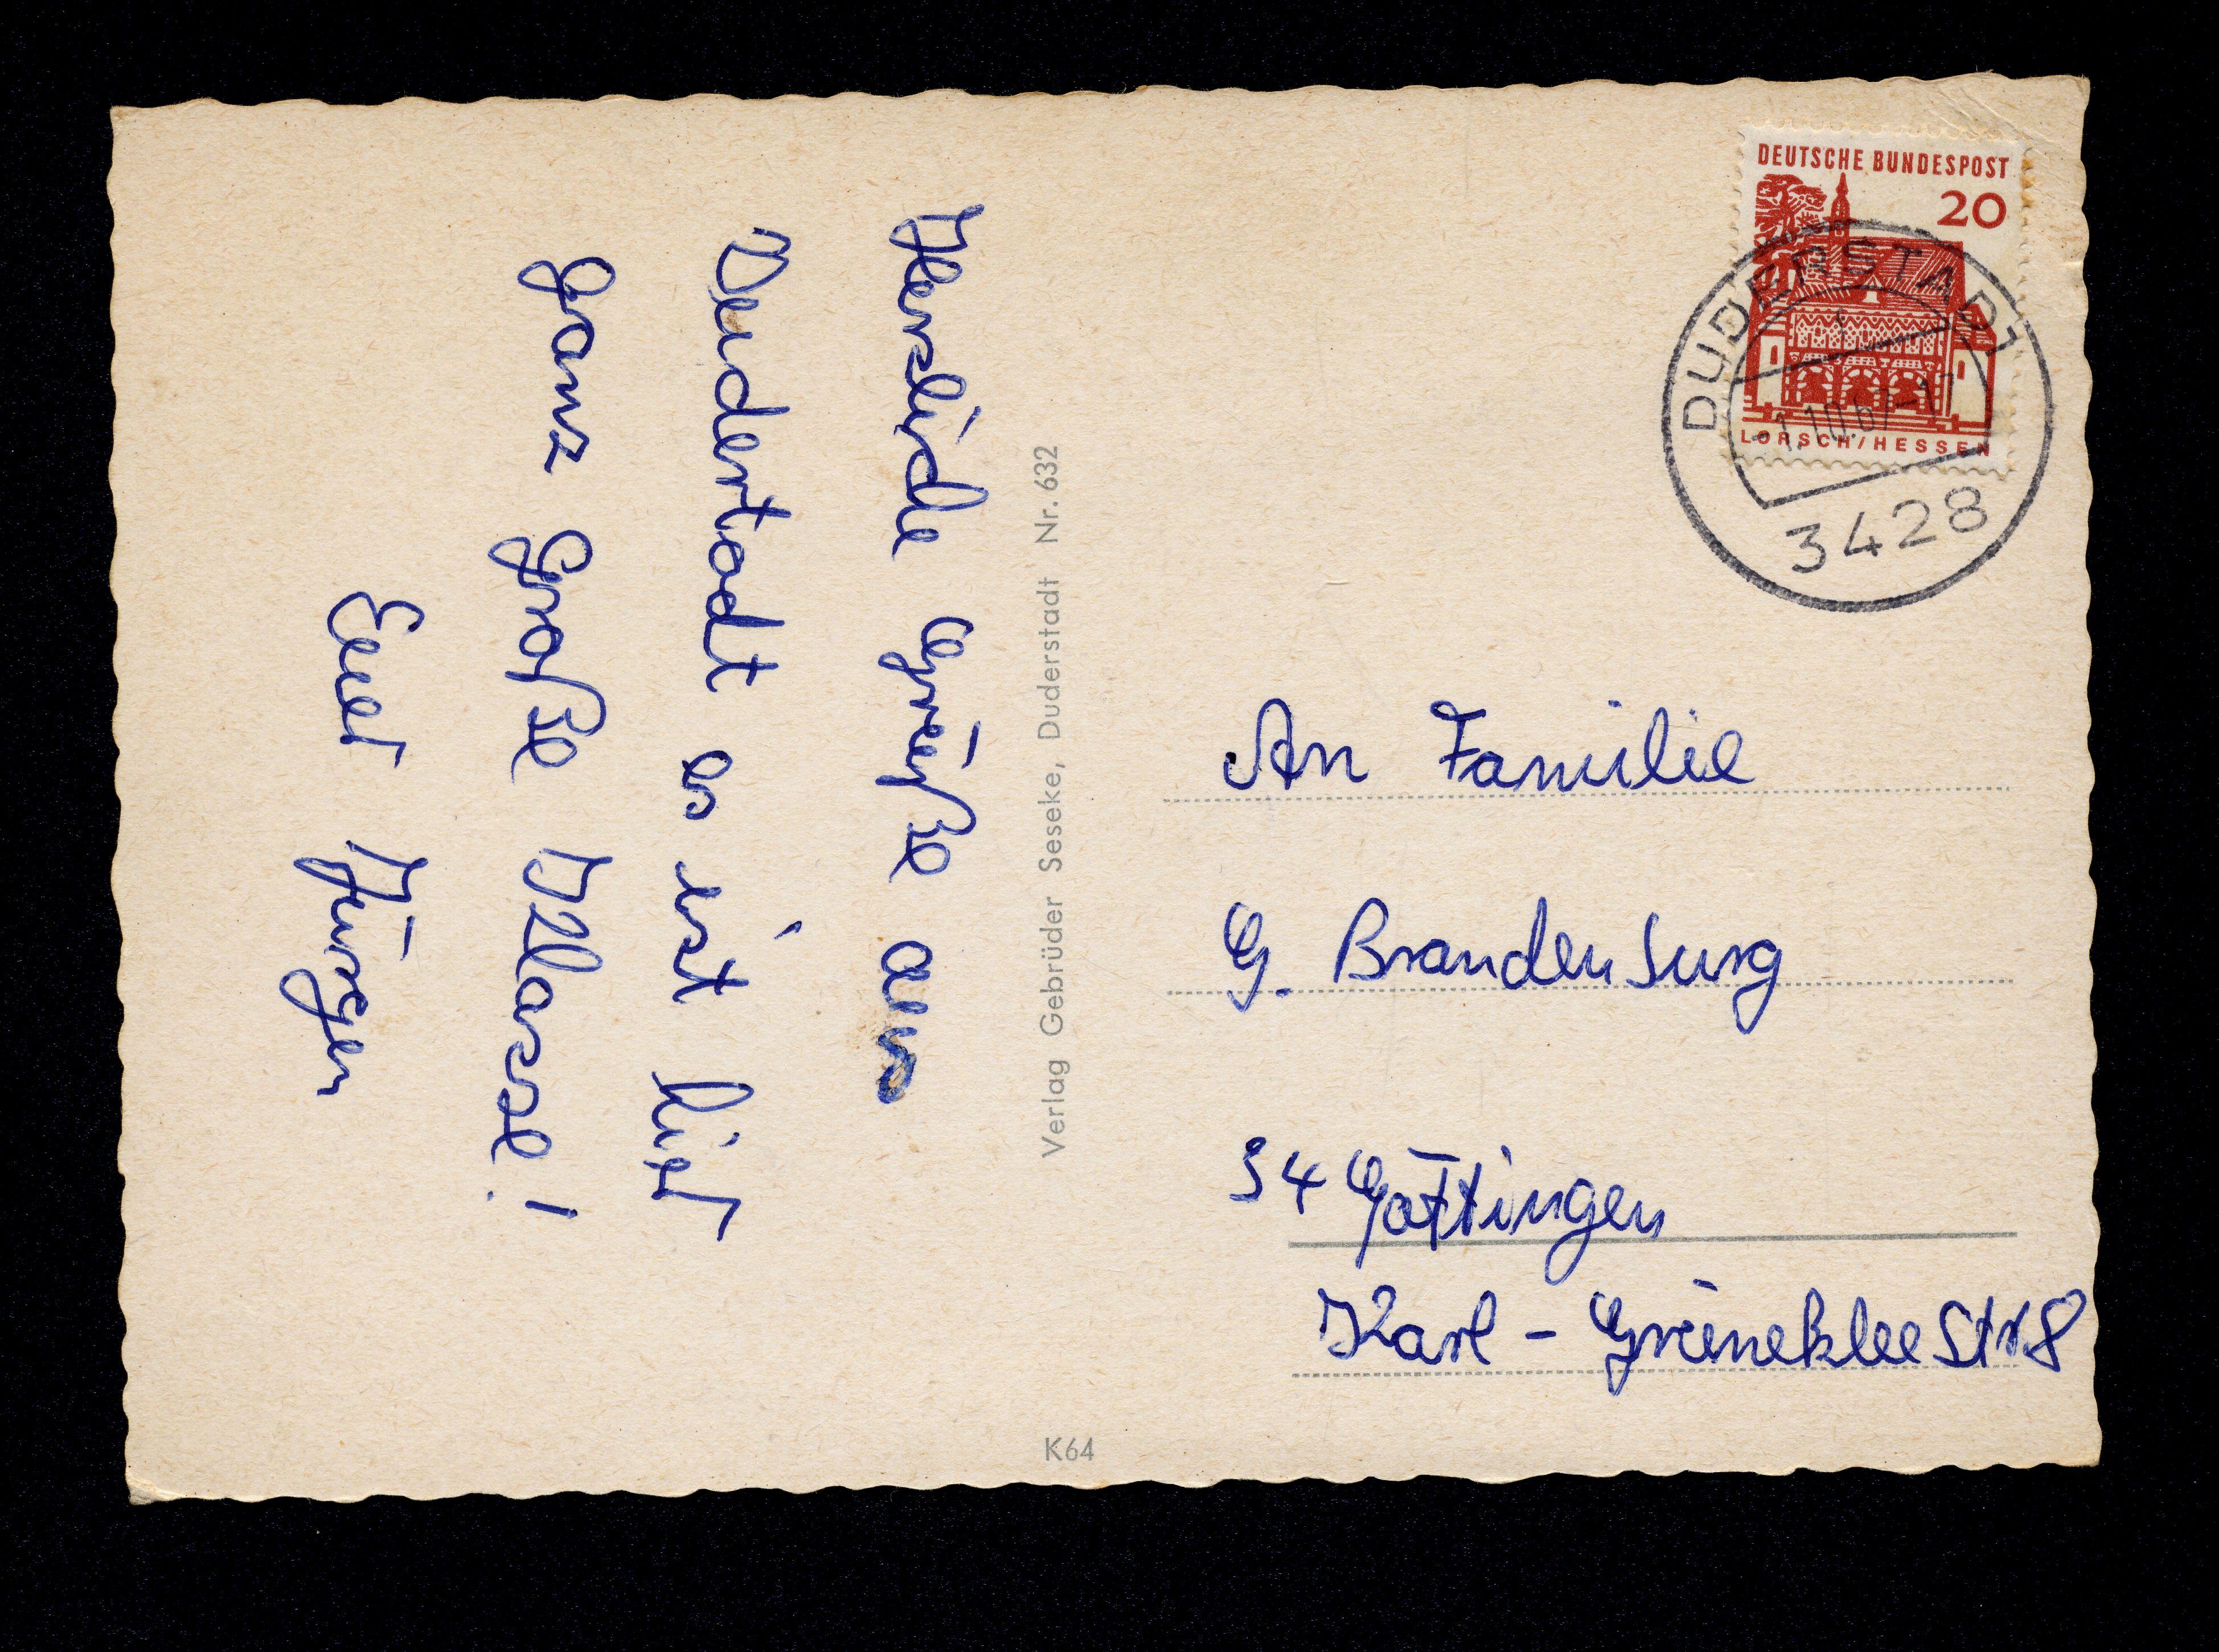 Herzliche Grüße aus
Deudertadt es ist hier
ganz große Klasse!
Euer Jürgen
Verlag Gebrüder Seseke, Duderstadt Nr. 632
K64
DEUTSCHE BUNDESPOST
20
LORSCH/HESSEN
DUDERSTADT
-1.10.67-17
3428
An Familie
G. Brandenburg
34 Göttingen
Karl - Grüneklee Str 8